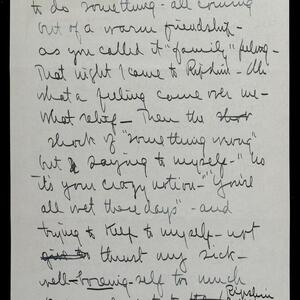 to do something - all coming
out of a warm friendship -
as you called it "family" feeling -
That night I come to Ripshin - Oh
what a feeling come over me -
What relief - Then the
shock of "something wrong"
but saying to myself - "no
it's your crazy notion - "You're
all wet these days" - and
trying to keep to myself - not
thrust my sick -
well - boring - self too much
Ripshin